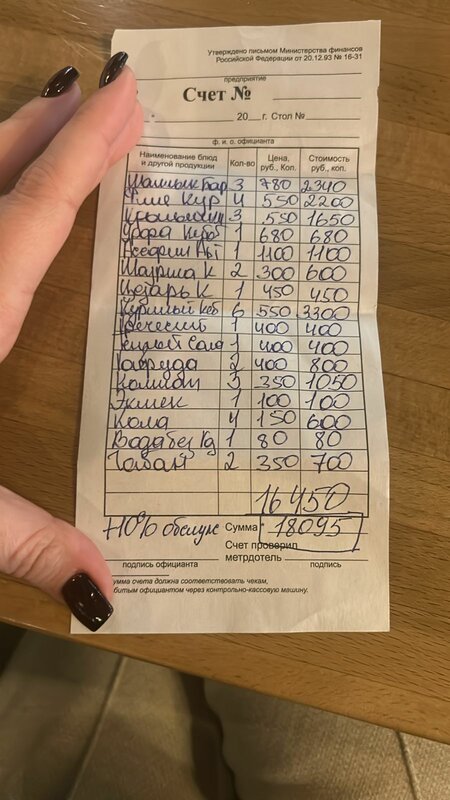 Утверждено письмом Министерства финансов
Российской Федерации от 20.12.93 № 16-31
предприятие
Счет №
20__ г. Стол №
ф. и. о. официанта
Наименование блюд и другой продукции Кол-во Цена, руб., Коп. Стоимость руб., коп.
Шашлык бар 3 780 2340
Филе Кур 4 550 2200
3 550 1650
1 680 680
1 1100 1100
Шаурма К 2 300 600
Цезарь К 1 450 450
Куриный Кеб 6 550 3300
Греческий 1 400 400
Теплый Сала 1 400 400
2 400 800
3 350 1050
Экмек 1 100 100
Кола 4 150 600
Вода без Га 1 80 80
2 350 700
16450
+10% обслуж Сумма 18095
Счет проверил
метрдотель
подпись официанта подпись
умма счета должна соответствовать чекам,
битым официантом через контрольно-кассовую машину.